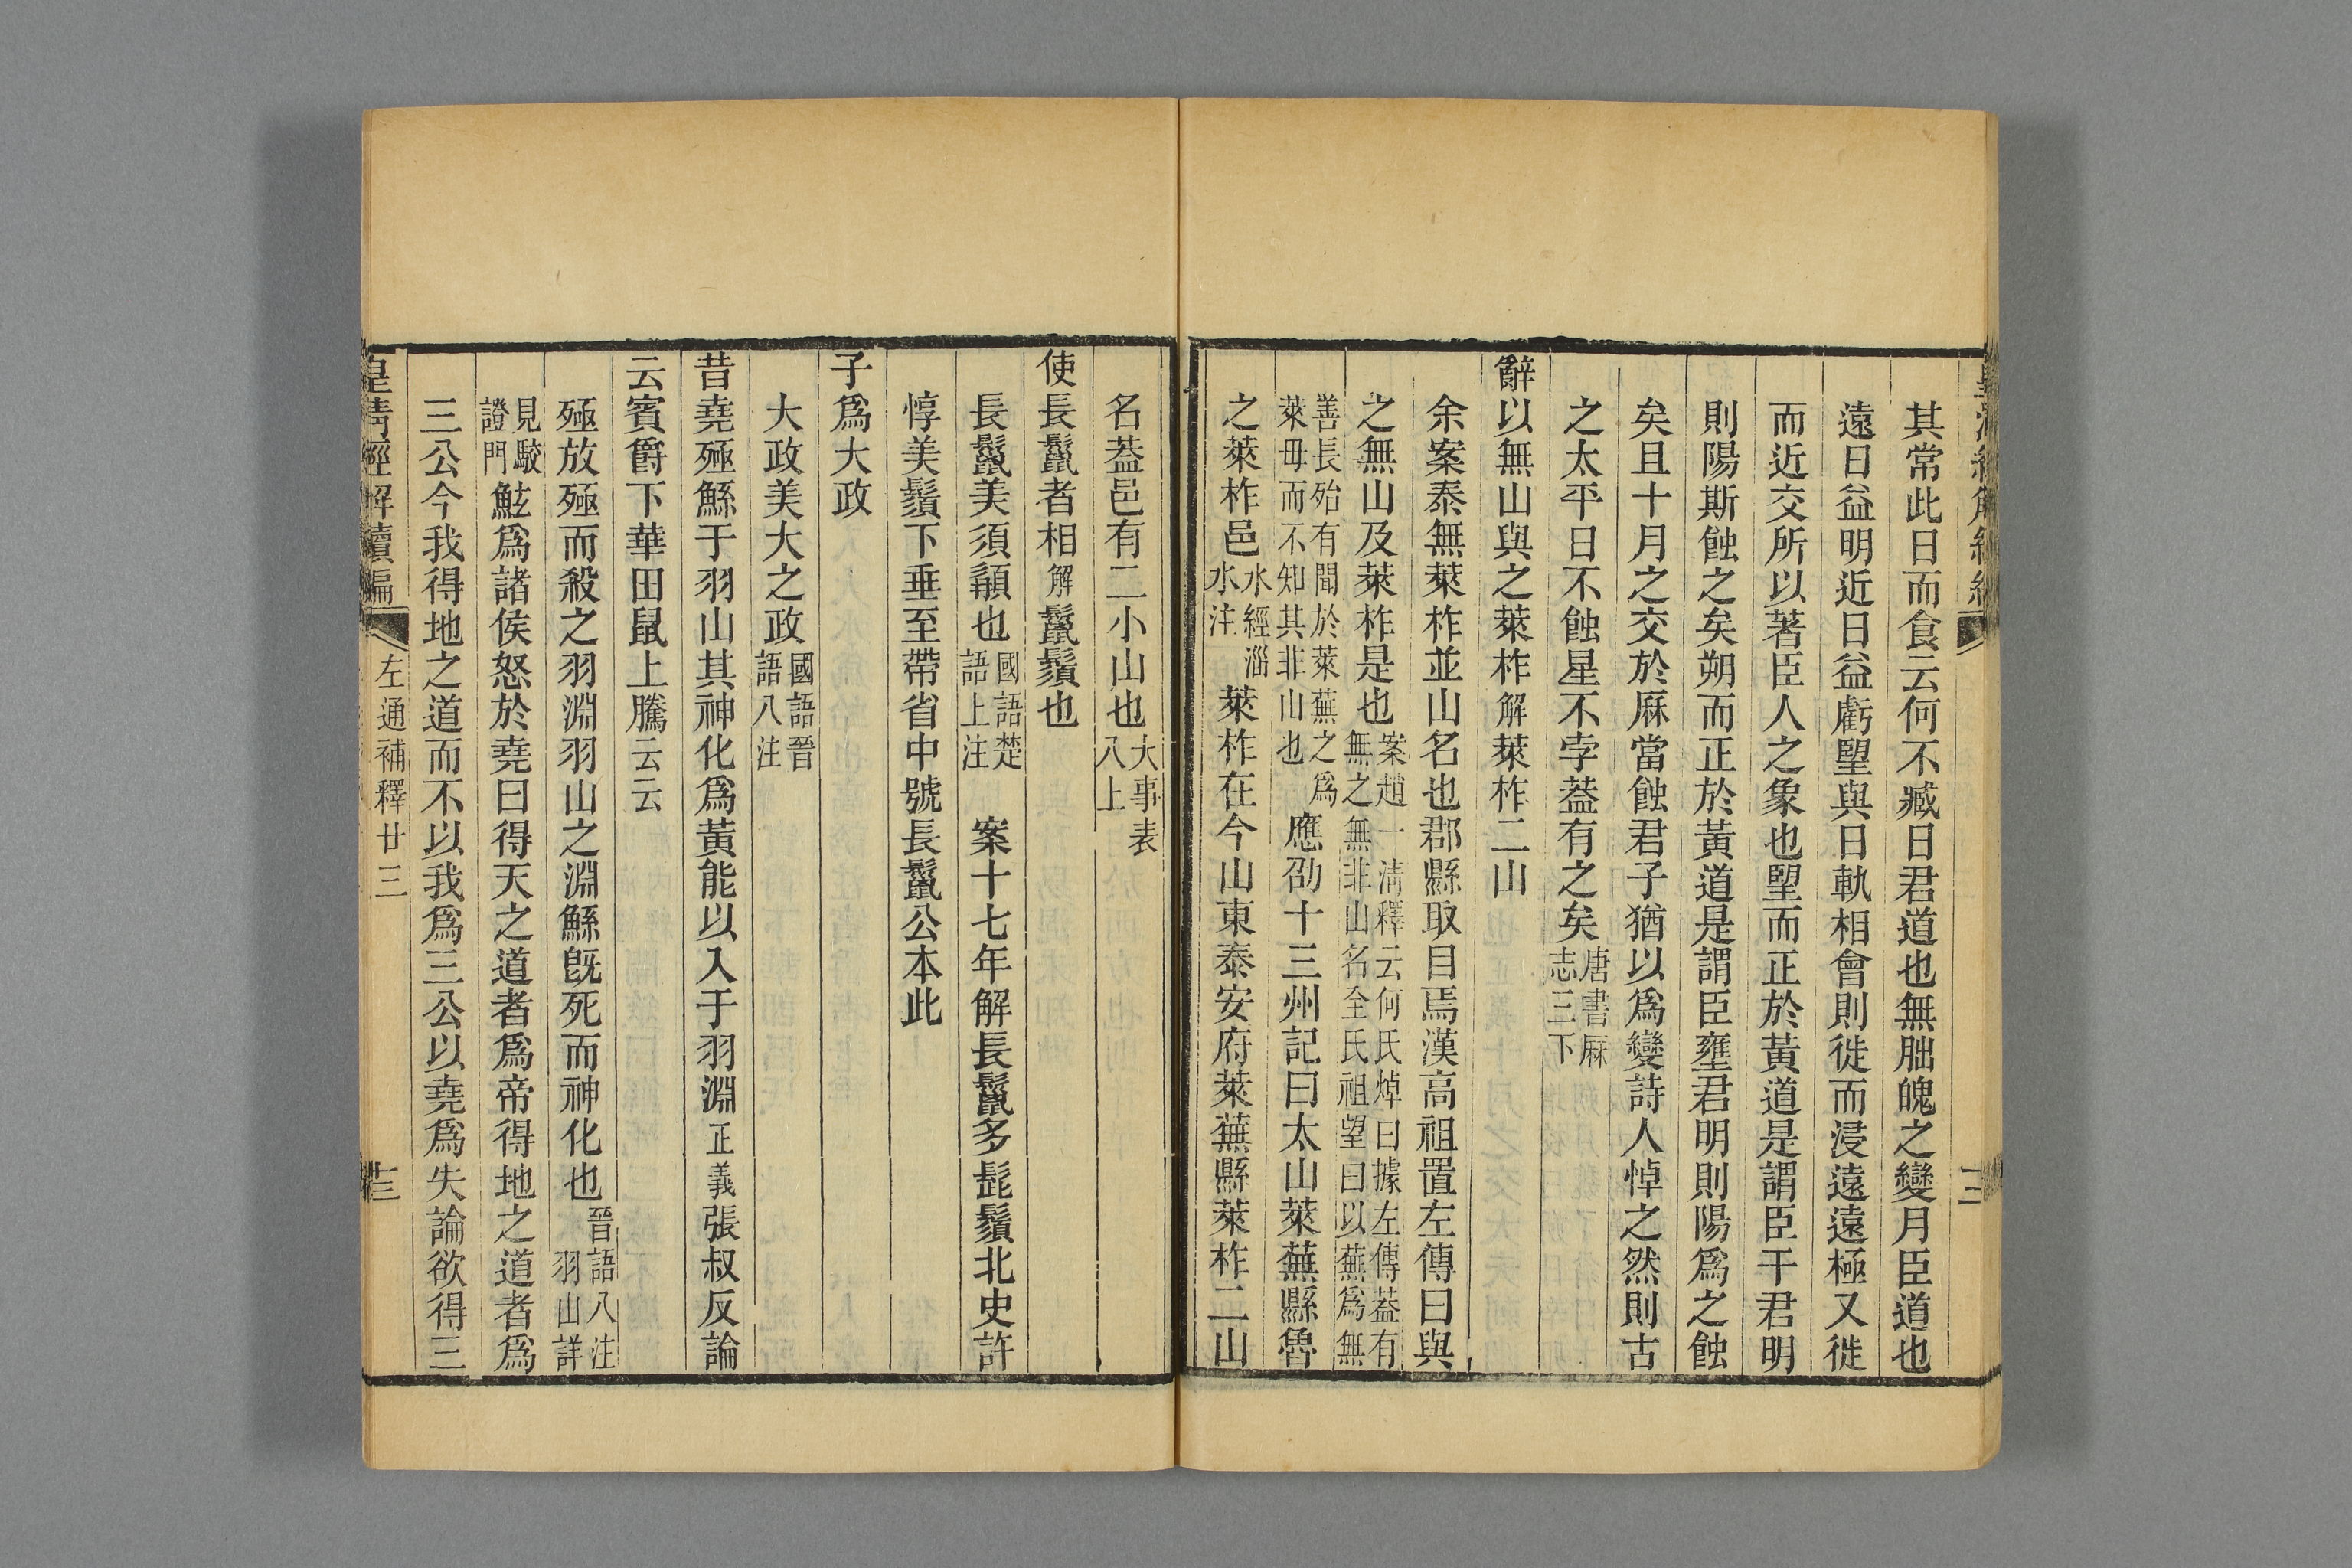 其常此日而食云何不臧日君道也無朏魄之變月臣道也
遠日益明近日益虧朢與日軌相會則徙而浸遠遠極又徙
而近交所以著臣人之象也朢而正於黃道是謂臣干君明
則陽斯蝕之矣朔而正於黃道是謂臣壅君明則陽爲之蝕
矣且十月之交於厤當蝕君子猶以爲變詩人悼之然則古
之太平日不蝕星不孛葢有之矣唐書厤志三下
辭以無山與之萊柞解萊柞二山
余案泰無萊柞並山名也郡縣取目焉漢高祖置左傳曰與
之無山及萊柞是也案趙一清釋云何氏焯曰據左傳葢有無之無非山名全氏祖望曰以蕪爲無
善長殆有聞於萊蕪之爲萊毋而不知其非山也應劭十三州記曰太山萊蕪縣魯
之萊柞邑水經淄水注萊柞在今山東泰安府萊蕪縣萊柞二山
名葢邑有二小山也大事表八上
使長鬣者相解鬣鬚也
長鬣美須顬也國語楚語上注案十七年解長鬣多髭鬚北史許
惇美鬚下垂至帶省中號長鬣公本此
子爲大政
大政美大之政國語晉語八注
昔堯殛鯀于羽山其神化爲黃能以入于羽淵正義張叔反論
云賓爵下華田鼠上騰云云
殛放殛而殺之羽淵羽山之淵鯀旣死而神化也晉語八注羽山詳
見駮證門鮌爲諸侯怒於堯曰得天之道者爲帝得地之道者爲
三公今我得地之道而不以我爲三公以堯爲失論欲得三
皇清經解續編
左通補釋廿三